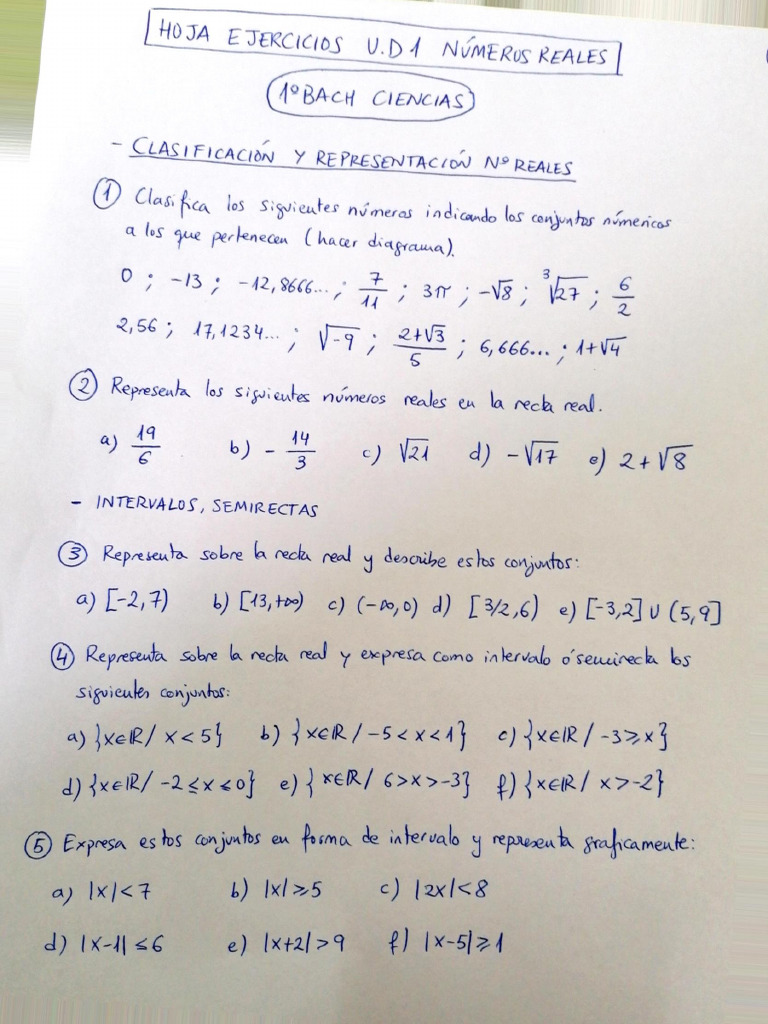 HOJA EJERCICIOS U.D1 NÚMEROS REALES
1º BACH CIENCIAS
- CLASIFICACIÓN Y REPRESENTACIÓN Nº REALES
① Clasifica los siguientes números indicando los conjuntos númericos
a los que pertenecen (hacer diagrama).
0 ; -13 ; -12,8666... ; 7/11 ; 3π ; -√8 ; ³√27 ; 6/2
2,56 ; 17,1234... ; √-9 ; (2+√3)/5 ; 6,666... ; 1+√4
② Representa los siguientes números reales en la recta real.
a) 19/6 b) - 14/3 c) √21 d) -√17 e) 2+√8
- INTERVALOS, SEMIRECTAS
③ Representa sobre la recta real y describe estos conjuntos:
a) [-2,7) b) [13,+∞) c) (-∞,0) d) [3/2,6) e) [-3,2] U (5,9]
④ Representa sobre la recta real y expresa como intervalo ó semirecta los
siguientes conjuntos:
a) {x∈ℝ/ x<5} b) {x∈ℝ/ -5<x<1} c) {x∈ℝ/ -3≥x}
d) {x∈ℝ/ -2≤x≤0} e) {x∈ℝ/ 6>x>-3} f) {x∈ℝ/ x>-2}
⑤ Expresa estos conjuntos en forma de intervalo y representa graficamente:
a) |x|<7 b) |x|≥5 c) |2x|<8
d) |x-1|≤6 e) |x+2|>9 f) |x-5|≥1